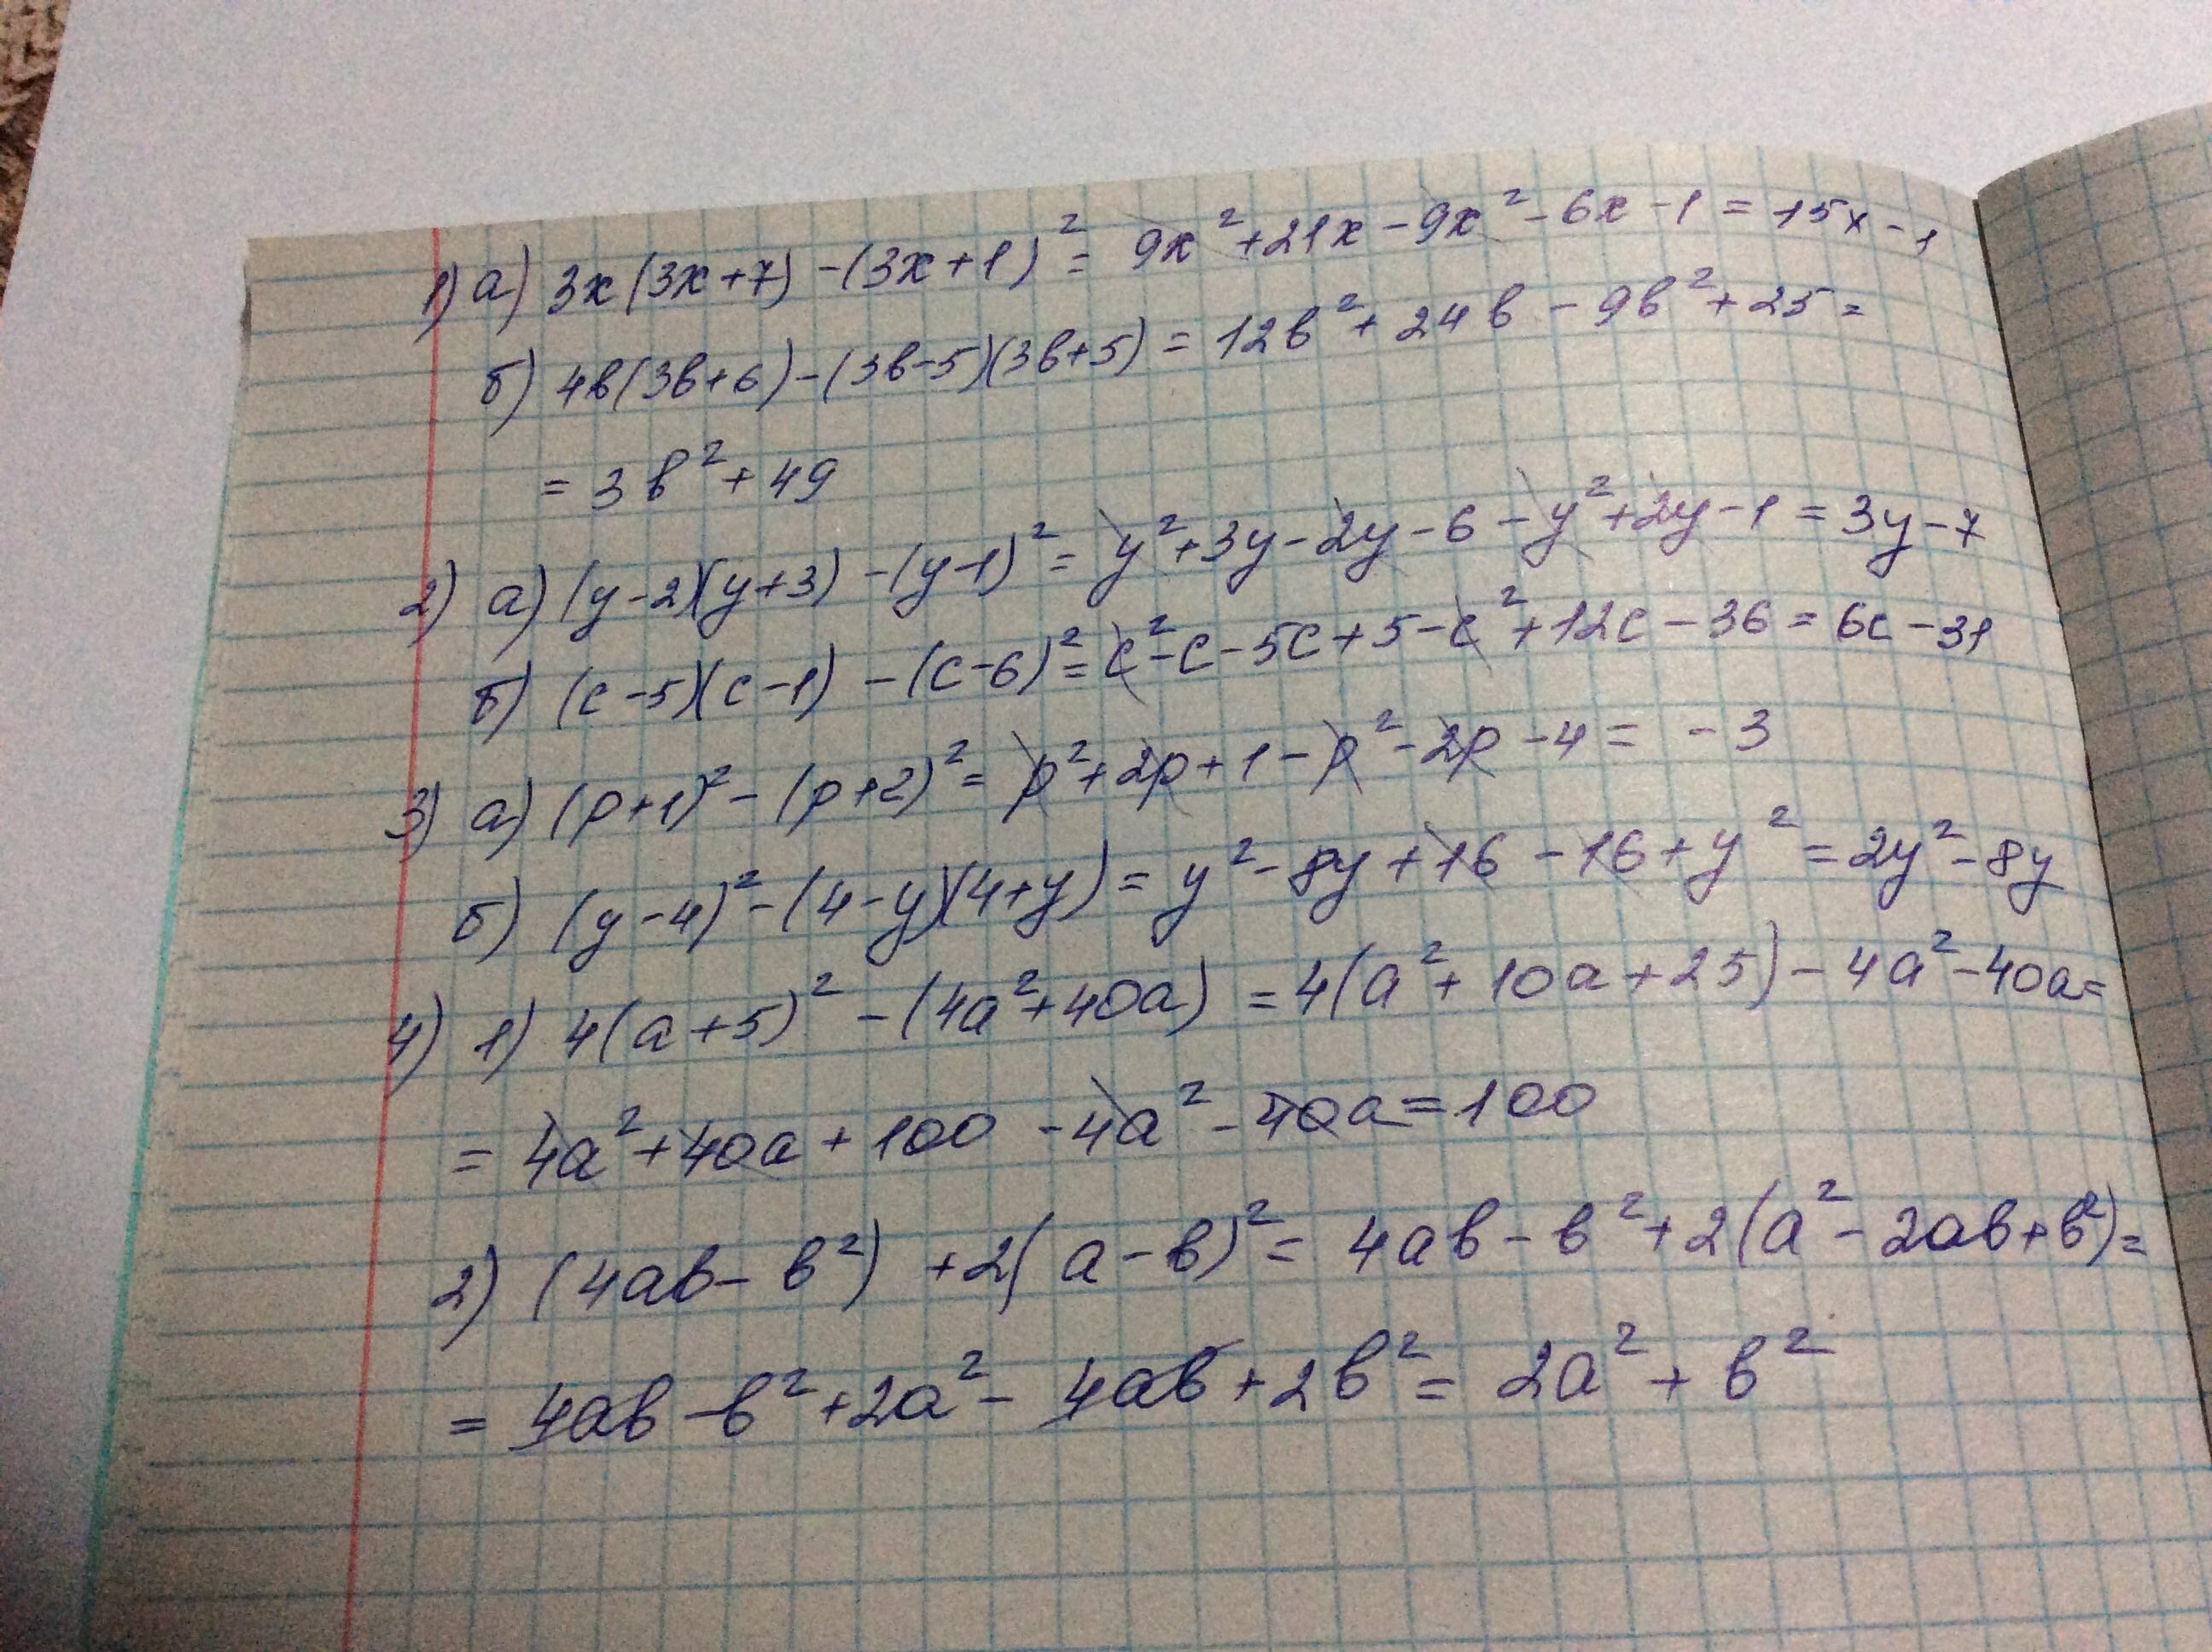 1) а) 3x(3x+7) -(3x+1)² = 9x²+21x-9x²-6x-1 = 15x-1
б) 4в(3в+6)-(3в-5)(3в+5) = 12в²+24в-9в²+25=
= 3в²+49
2) а) (y-2)(y+3) -(y-1)² = y²+3y-2y-6-y²+2y-1 = 3y-7
б) (c-5)(c-1) -(c-6)² = c²-c-5c+5-c²+12c-36 = 6c-31
3) а) (p+1)²-(p+2)² = p²+2p+1-p²-2p-4 = -3
б) (y-4)²-(4-y)(4+y) = y²-8y+16-16+y² = 2y²-8y
4) 1) 4(a+5)² -(4a²+40a) = 4(a²+10a+25)-4a²-40a=
= 4a²+40a+100-4a²-40a=100
2) (4ав-в²) +2(a-в)² = 4ав-в²+2(a²-2ав+в²)=
= 4ав-в²+2a²-4ав+2в² = 2a²+в²